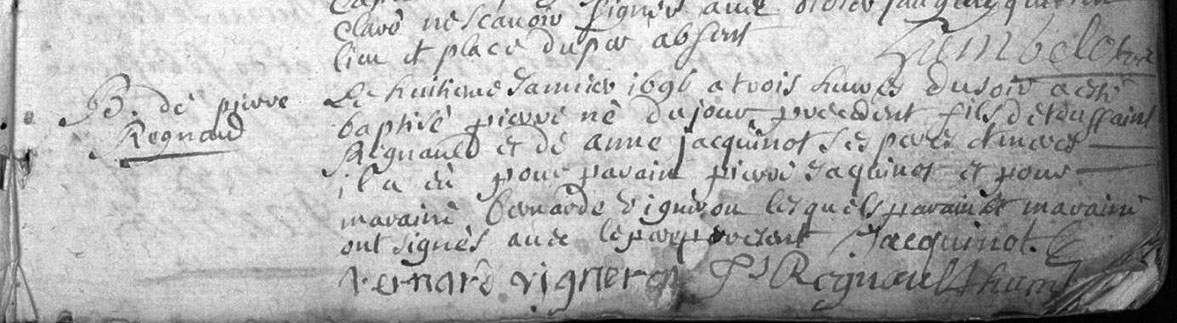 claré ne scavoir signer avec
lieu et place du per absent
B. de pierre
Regnaud
Le huitieme Janvier 1696 a trois heures du soir a esté
baptisé pierre né du jour precedent fils de toussaint
Regnauld et de anne jacquinot ses peres et meres
il a eu pour parain pierre Jaquinot et pour
maraine bernarde vigneron lesquels parain et maraine
ont signés avec le pere present Jacquinot
bernard vigneron Regnauld